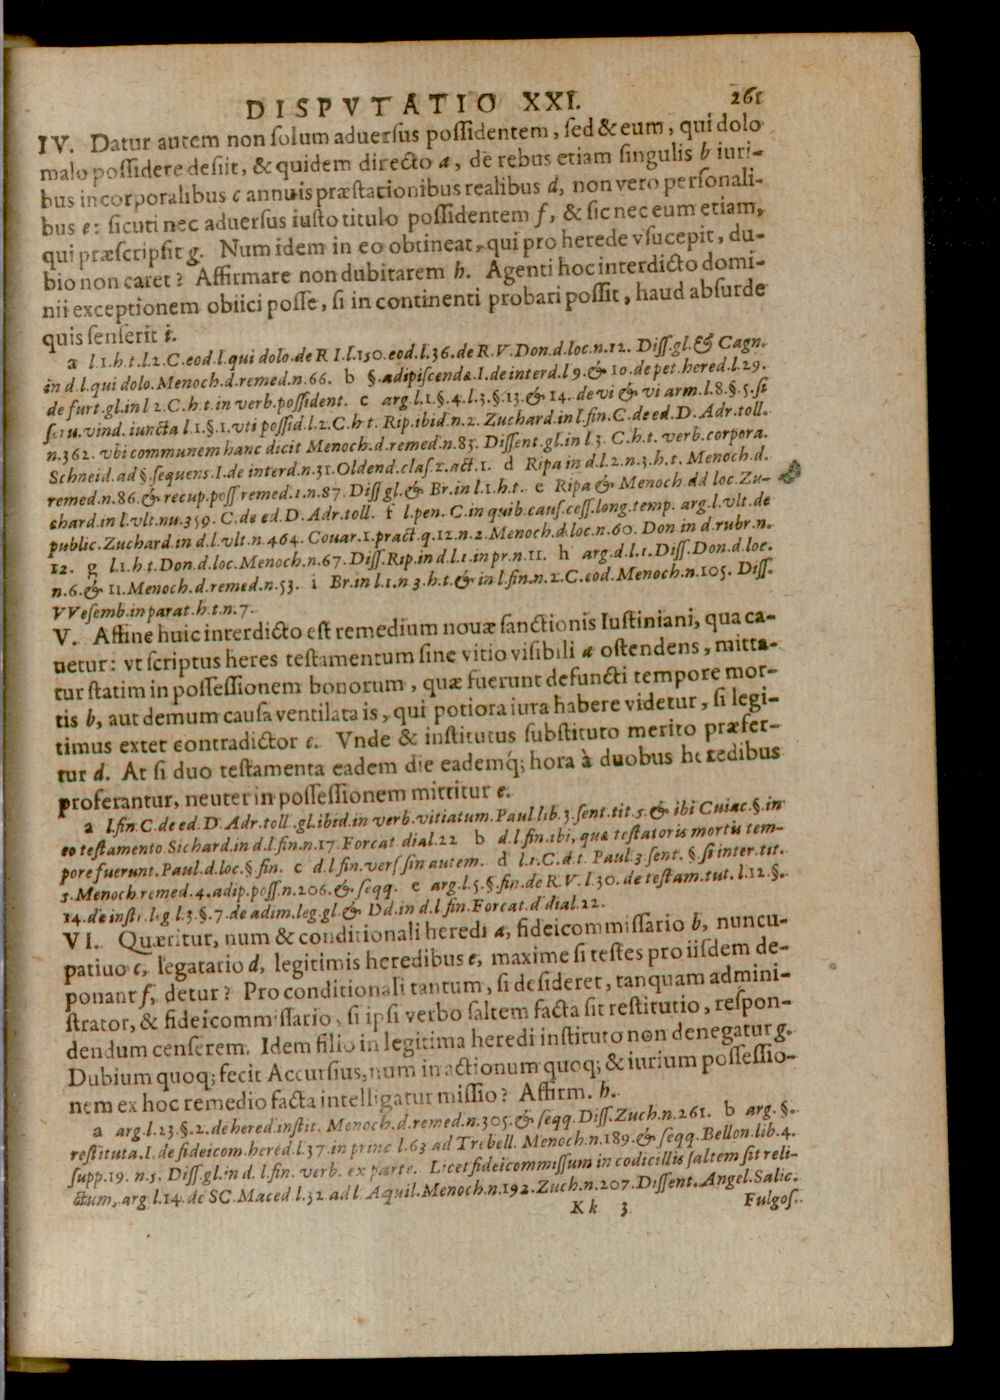 DISPVTATIO XXI. 261
IV. Datur autem non ſolum aduerſus poſſidentem, ſed & eum, qui dolo
malo poſſidere deſiit, & quidem directo a, de rebus etiam ſingulis b iuri-
bus incorporalibus c annuis præſtationibus realibus d, non vero perſonali-
bus e: ſicuti nec aduerſus iuſto titulo poſſidentem f, & ſic nec eum etiam,
qui præſcripſit g. Num idem in eo obtineat, qui pro herede vſucepit, du-
bio non caret? Affirmare non dubitarem h. Agenti hoc interdicto domi-
nii exceptionem obiici poſſe, ſi in continenti probari poſſit, haud abſurde
quis ſenſerit i.
a l.1.h.t.l.2.C.eod.l.qui dolo.de R I.l.150.eod.l.36.de R.V.Don.d.loc.n.12. Diſſ.gl.& Cagn.
in d.l.qui dolo.Menoch.d.remed.n.66. b §.adipiſcenda.I.de interd.l 9.& 10.de pet.hered.l.29.
de furt.gl.in l 2.C.h.t.in verb.poſſident. c arg.l.1.§.4.l.3.§.13.& 14. de vi & vi arm.l.8.§.5.ſi
ſeru.vind. iuncta l 1.§.1.vti poſſid.l.2.C.h t. Rip.ibid.n.2. Zuchard.in l.fin.C.de ed.D.Adr.toll.
n.362. vbi communem hanc dicit Menoch.d.remed.n.85. Diſſent.gl.in l 3. C.h.t. verb.corpora.
Schneid.ad §.ſequens.I.de interd.n.31.Oldend.claſ.2.act.1. d Ripa in d.l.2.n.3.h.t. Menoch.d.
remed.n.86.& recup.poſſ remed.1.n.87. Diſſ gl.& Br.in l.1.h.t. e Ripa & Menoch.dd loc.Zu-
chard.in l.vlt.nu.359. C.de ed.D.Adr.toll. f l.pen. C.in quib.cauſ.ceſſ.long.temp. arg.l.vlt.de
public.Zuchard.in d.l.vlt.n.464.Couar.1.pract.q.12.n.2.Menoch.d.loc.n.60. Don in d.rubr.n.
12. g l.1.h.t.Don.d.loc.Menoch.n.67.Diſſ.Rip.in d.l.1.in pr.n.11. h arg.d.l.1.Diſſ.Don.d.loc.
n.6.& 11.Menoch.d.remed.n.53. i Br.in l.1.n 3.h.t.& in l.fin.n.2.C.eod.Menoch.n.105. Diſſ.
VVeſemb.in parat.h.t.n.7.
V. Affine huic interdicto eſt remedium nouæ ſanctionis Iuſtiniani, qua ca-
uetur: vt ſcriptus heres teſtamentum ſine vitio viſibili a oſtendens, mitta-
tur ſtatim in poſſeſſionem bonorum, quæ fuerunt defuncti tempore mor-
tis b, aut demum cauſa ventilata is, qui potiora iura habere videtur, ſi legi-
timus extet contradictor c. Vnde & inſtitutus ſubſtituto merito præfer-
tur d. At ſi duo teſtamenta eadem die eademq; hora à duobus heredibus
proferantur, neuter in poſſeſſionem mittitur e.
a l.fin.C.de ed.D.Adr.toll.gl.ibid.in verb.vitiatum.Paul lib.3.ſent.tit.5.& ibi Cuiac.§.in
eo teſtamento.Sichard.in d.l.fin.n.17.Forcat dial.22 b d.l.fin.ibi, quæ teſtatoris mortis tem-
pore fuerunt.Paul.d.loc.§ fin. c d.l.fin.verſ ſin autem. d l.1.C.d.t. Paul 3 ſent. §.ſi inter.tit.
5.Menoch remed.4.adip.poſſ.n.206.& ſeqq. e arg.l.5.§.fin.de R.V.l.30. de teſtam.tut.l.12.§.
14.de inſtr.leg l.3.§.7.de adim.leg.gl.& Dd.in d.l fin.Forcat.d dial.22.
VI. Quæritur, num & conditionali heredi a, fideicommiſſario b, nuncu-
patiuo c, legatario d, legitimis heredibus e, maxime ſi teſtes pro iiſdem de-
ponant f, detur? Pro conditionali tantum, ſi deſideret, tanquam admini-
ſtrator, & fideicommiſſario, ſi ipſi verbo ſaltem facta ſit reſtitutio, reſpon-
dendum cenſerem. Idem filio in legitima heredi inſtituto non denegatur g.
Dubium quoq; fecit Accurſius, num in actionum quoq; & iurium poſſeſſio-
nem ex hoc remedio facta intelligatur miſſio? Affirm. h.
a arg.l.23.§.2.de hered.inſtit. Menoch.d.remed.n.305.& ſeqq.Diſſ.Zuch.n.261. b arg.§.
reſtituta.I.de fideicom.hered.l.37.in princ l.63 ad Trebell. Menoch.n.189.& ſeqq.Bellon.lib.4.
ſupp.19. n.5. Diſſ.gl.in d.l.fin. verb. ex parte. Licet fideicommiſſum in codicillis ſaltem ſit reli-
ctum, arg.l.14.de SC.Maced.l.32 ad l.Aquil.Menoch.n.192.Zuch.n.207.Diſſent.Angel.Salic.
Kk 3 Fulgoſ.